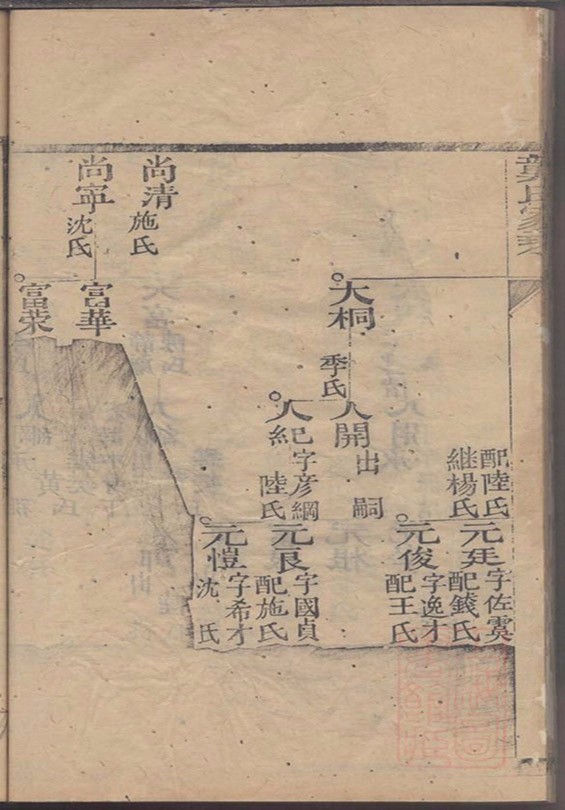 氏家
配陸氏
継楊氏
元廷
字佐虞
配錢氏
元俊
字逸才
配王氏
大桐
季氏
人開
出嗣
人紀
字彥綱
陸氏
元良
字國貞
配施氏
元愷
字希才
沈氏
尚清
施氏
尚寧
沈氏
富華
富荣